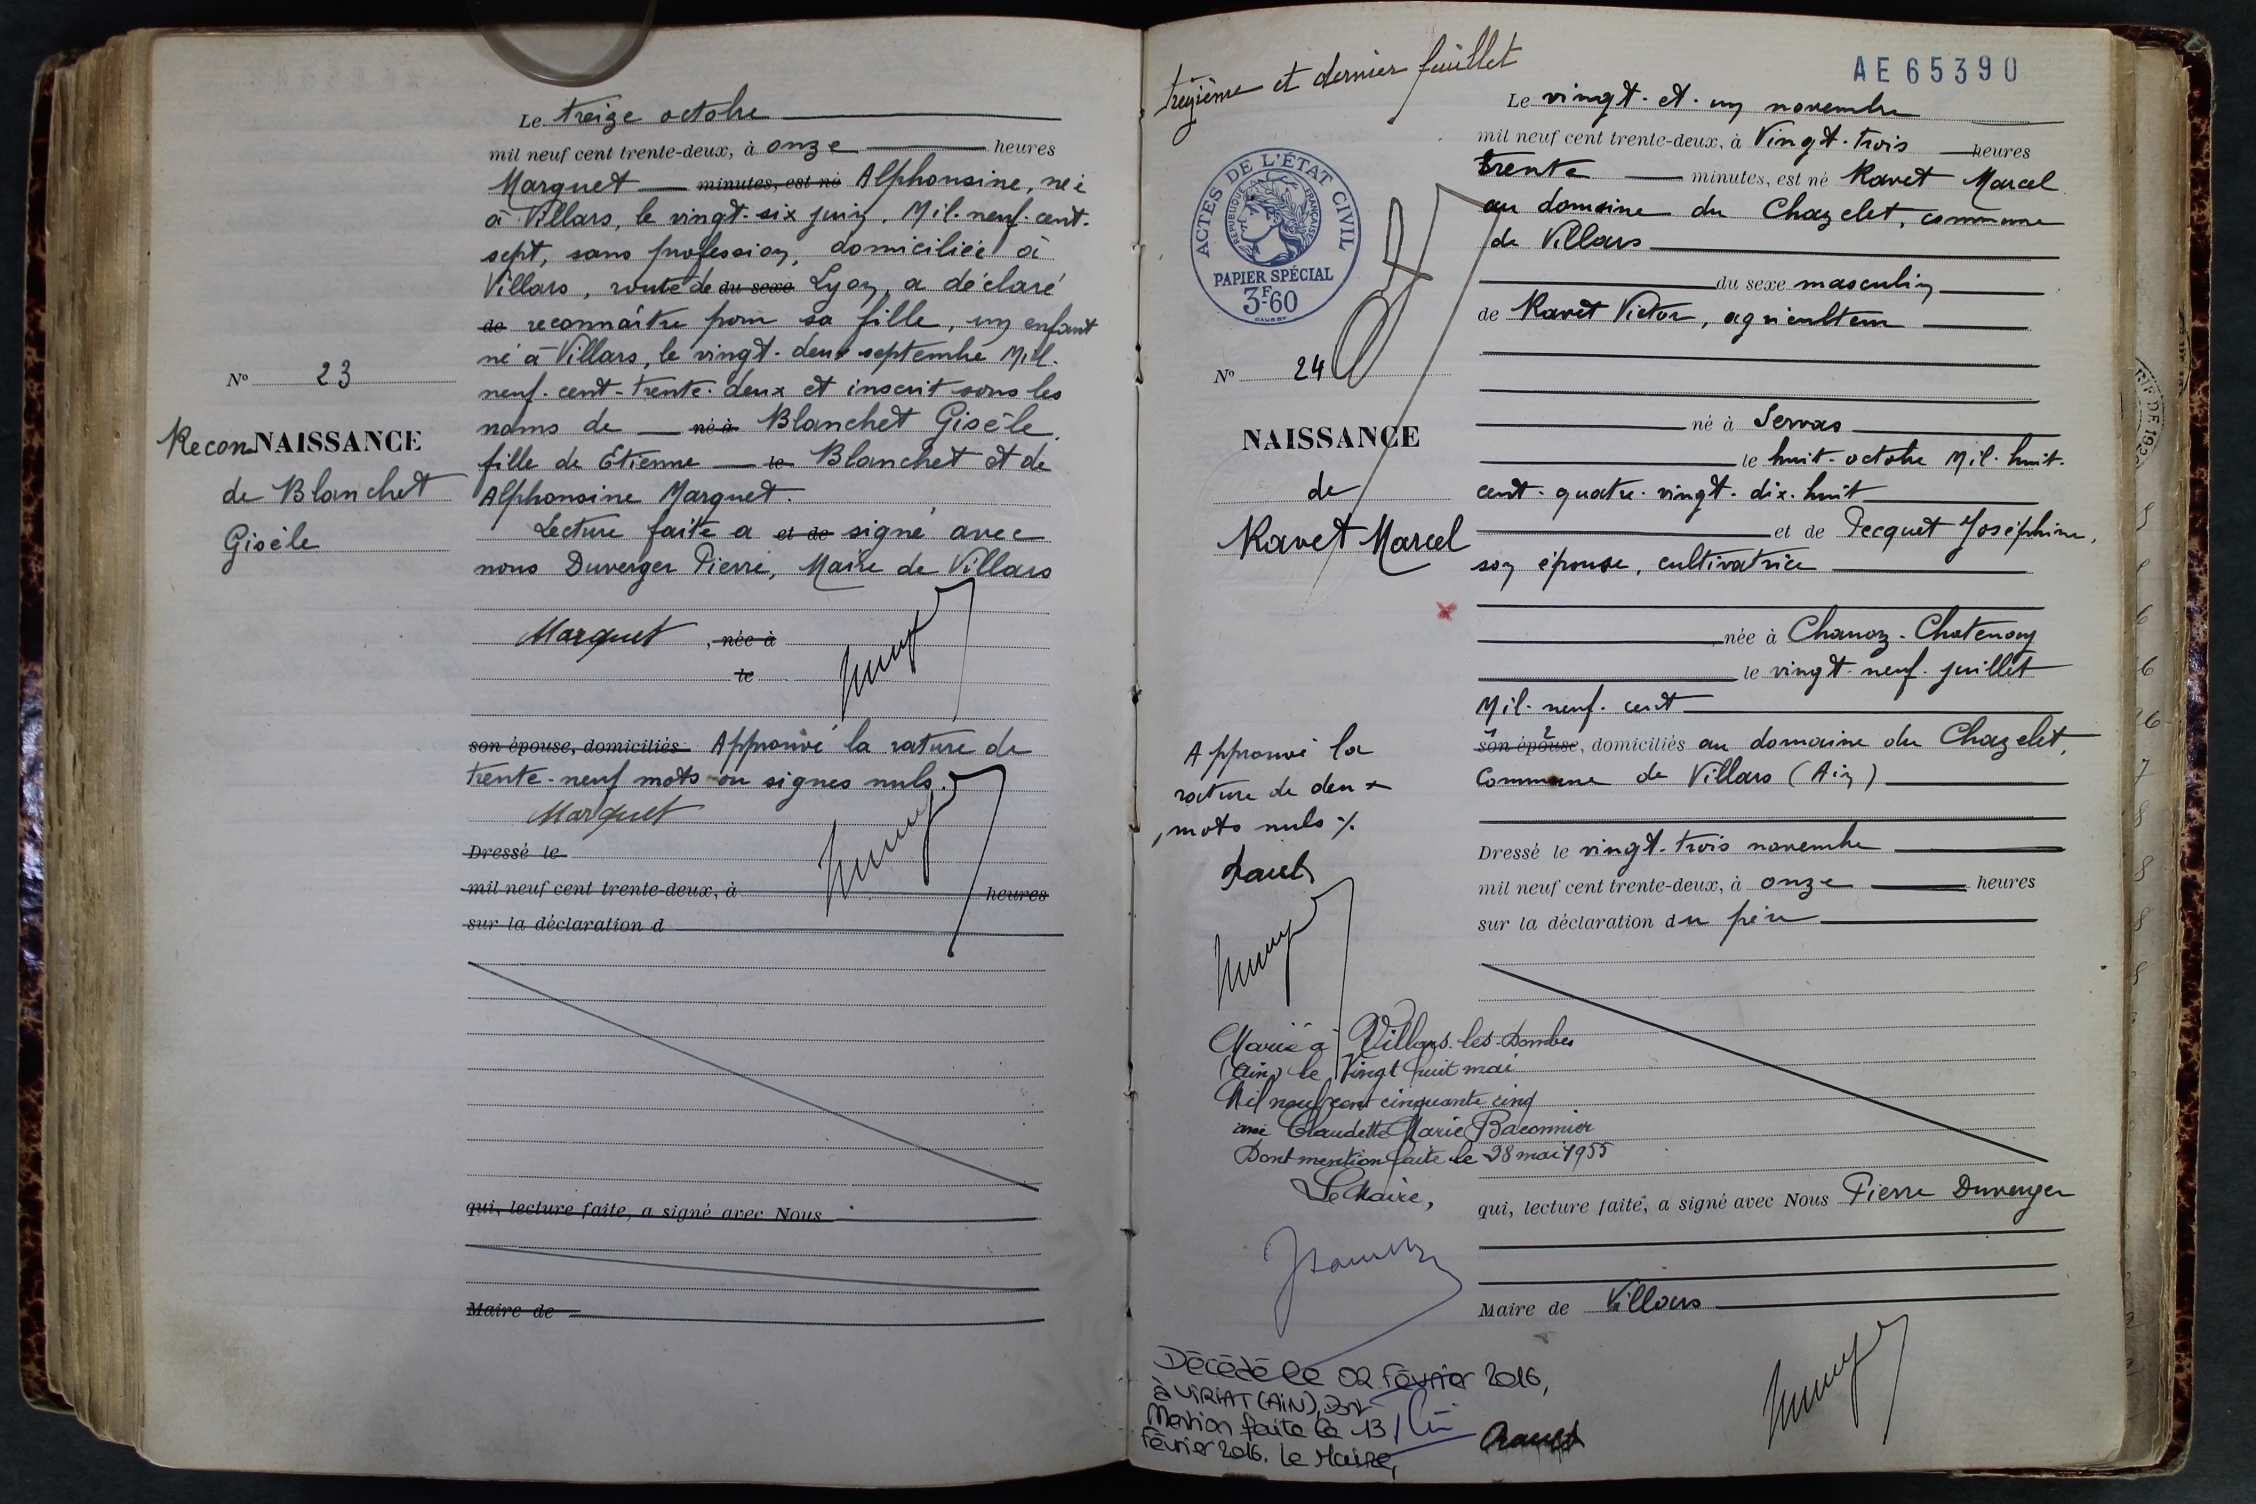 Le treize octobre
mil neuf cent trente-deux, à onze heures
Marguet minutes, est né Alphonsine, née
à Villars, le vingt-six juin, Mil-neuf-cent-
sept, sans profession, domiciliée à
Villars, route de du sexe Lyon, a déclaré
de reconnaître pour sa fille, un enfant
né à Villars, le vingt-deux septembre Mil-
neuf-cent-trente-deux et inscrit sous les
noms de né à Blanchet Gisèle,
fille de Etienne le Blanchet et de
Alphonsine Marguet.
Lecture faite a et de signé avec
nous Duverger Pierre, Maire de Villars
Marguet, née à
le
son épouse, domiciliés Approuvé la rature de
trente-neuf mots ou signes nuls.
Marguet
Dressé le
mil neuf cent trente-deux, à heures
sur la déclaration d
qui, lecture faite, a signé avec Nous
Maire de
No 23
ReconNAISSANCE
de Blanchet
Gisèle
treizième et dernier feuillet
AE65390
ACTES DE L'ÉTAT CIVIL
RÉPUBLIQUE FRANÇAISE
PAPIER SPÉCIAL
3F-60
No 24
NAISSANCE
de
Ravet Marcel
Le vingt-et-un novembre
mil neuf cent trente-deux, à Vingt-trois heures
trente minutes, est né Ravet Marcel
au domaine du Chazelet, commune
de Villars
du sexe masculin
de Ravet Victor, agriculteur
né à Servas
le huit-octobre Mil-huit-
cent-quatre-vingt-dix-huit
et de Pecquet Joséphine,
son épouse, cultivatrice
née à Chanoz-Chatenay
le vingt-neuf-juillet
Mil-neuf-cent
1 2
son épouse, domiciliés au domaine du Chazelet,
Commune de Villars (Ain)
Dressé le vingt-trois novembre
mil neuf cent trente-deux, à onze heures
sur la déclaration du père
qui, lecture faite, a signé avec Nous Pierre Duverger
Maire de Villars
Approuvé la
rature de deux
mots nuls ./.
Ravet
Marié à Villars-les-Dombes
(Ain) le Vingt huit mai
Mil neuf cent cinquante cinq
avec Claudette Marie Baconnier
Dont mention faite le 28 mai 1955
Le Maire,
Décédé le 02 Février 2016,
à VIRIAT (AIN), Dont
Mention faite le 13
Février 2016. Le Maire,
Ravet